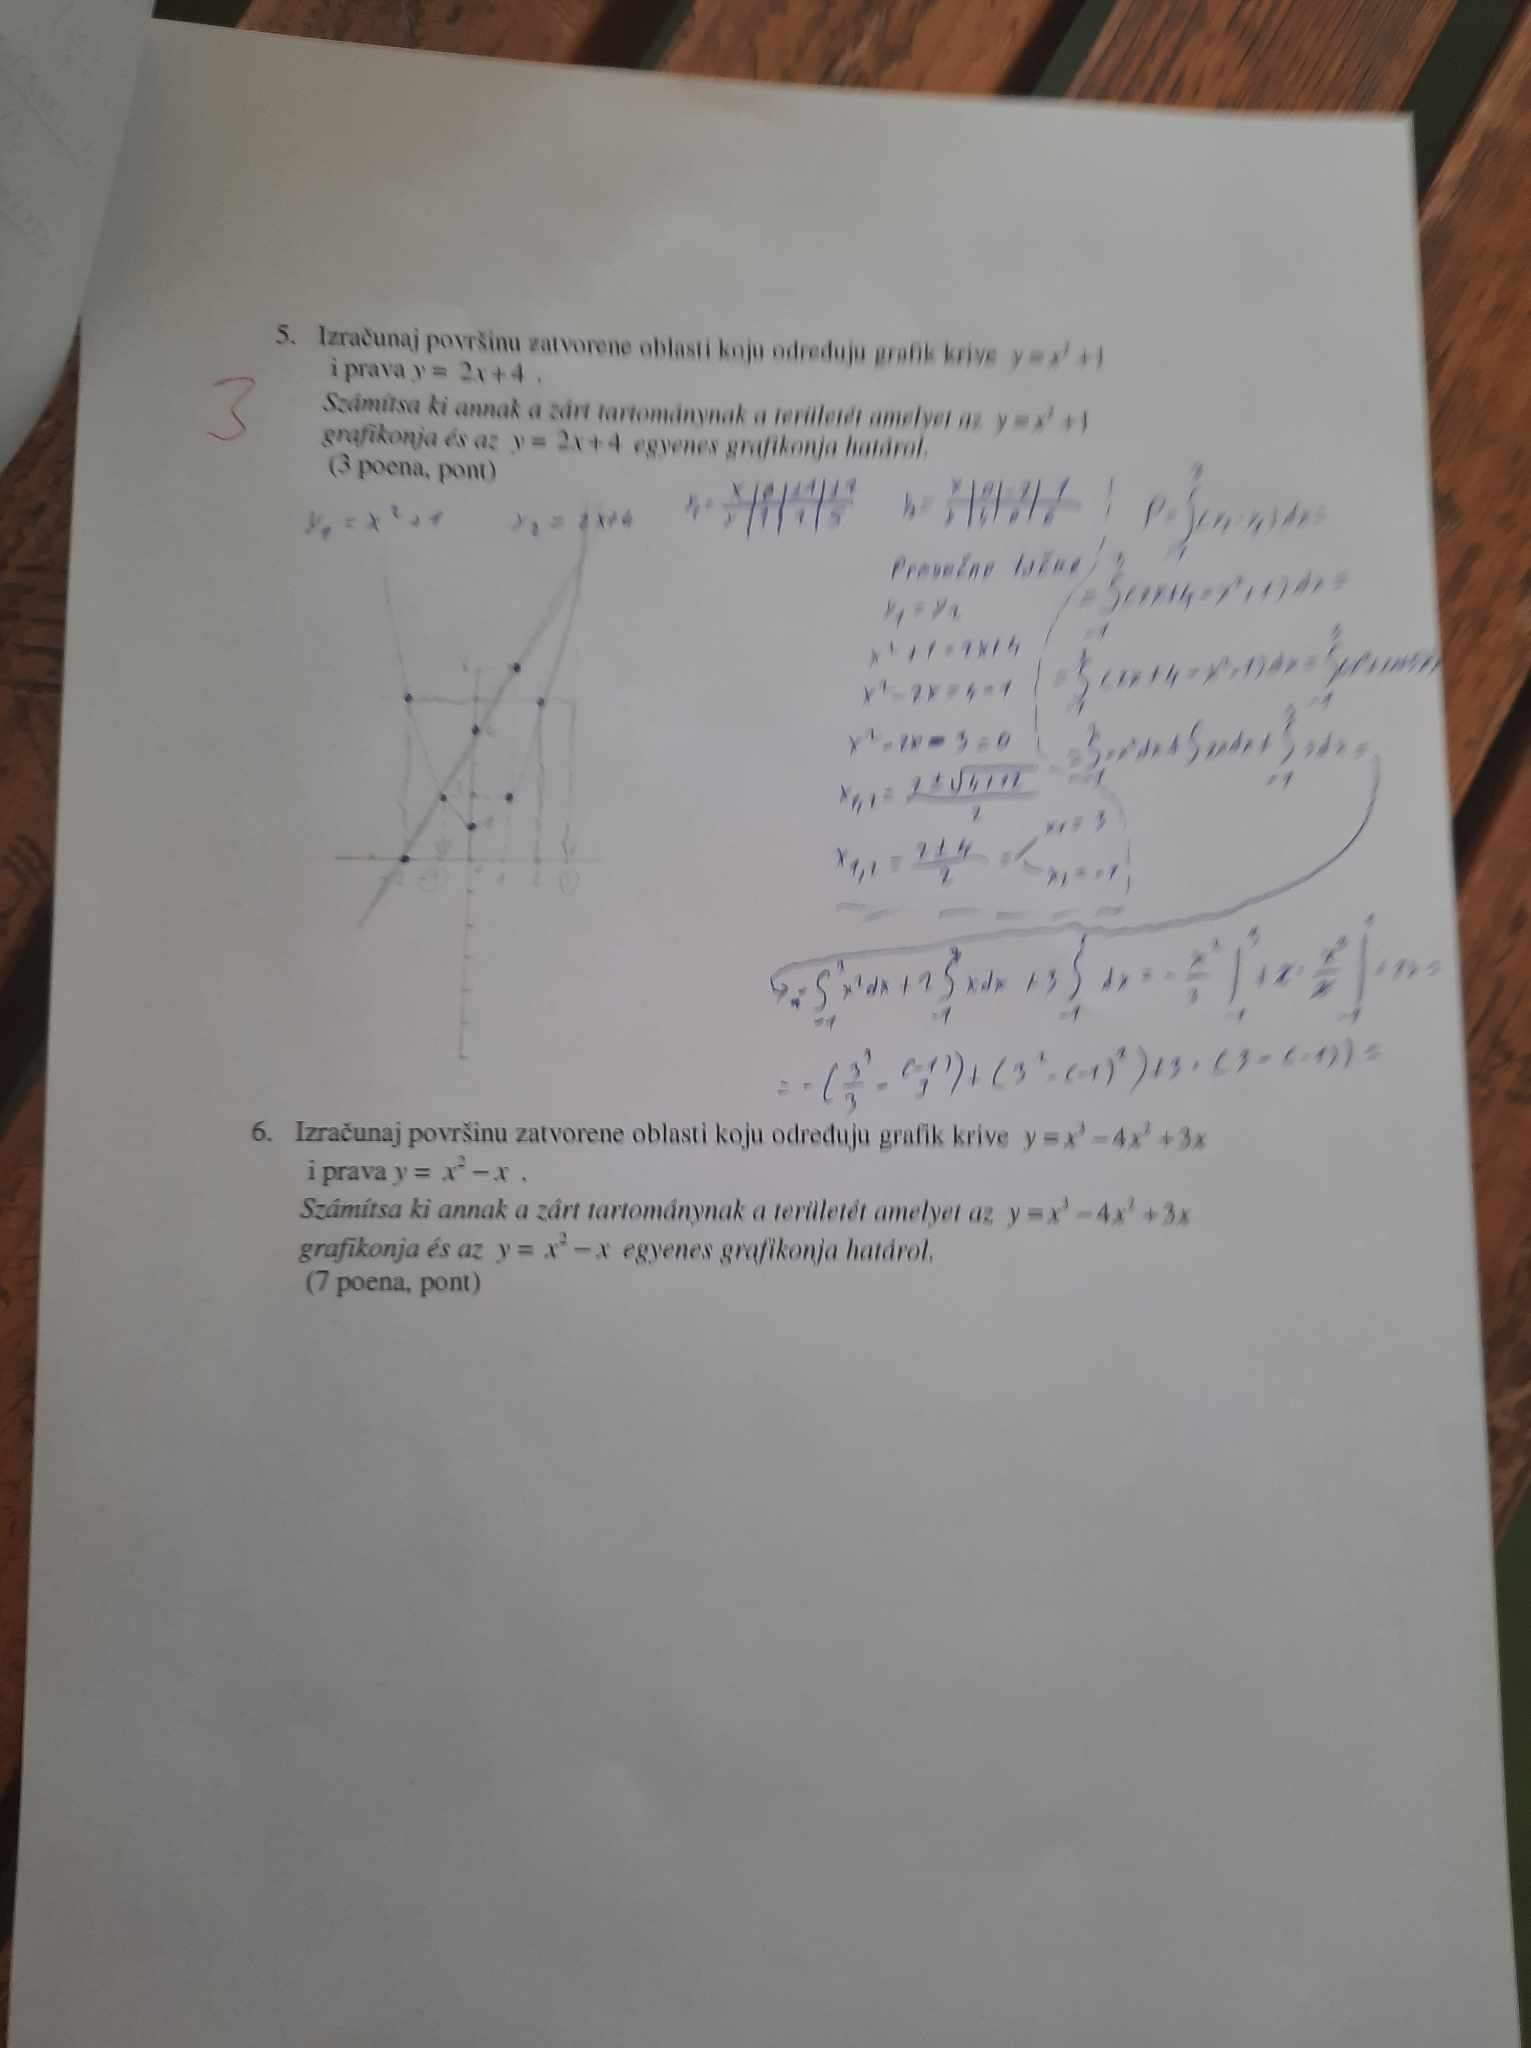 5. Izračunaj površinu zatvorene oblasti koju određuju grafik krive y = x² + 1
i prava y = 2x + 4 .
3
Számítsa ki annak a zárt tartománynak a területét amelyet az y = x² + 1
grafikonja és az y = 2x + 4 egyenes grafikonja határol.
(3 poena, pont)
y₁ = x² + 1
y₂ = 2x+4
Presečne tačke
y₁ = y₂
x² + 1 = 2x+4
x² - 2x = 4 - 1
x² - 2x - 3 = 0
x₁,₂ = 2 ± √4+12 / 2
x₁,₂ = 2 ± 4 / 2 =
x₁ = 3
x₂ = -1
= ∫(2x+4 - x² - 1) dx =
= -∫x²dx + 2∫xdx + 3∫dx = - x³/3 | + 2 · x²/2 |
= - (3³/3 - (-1)³/3) + (3² - (-1)²) + 3 · (3 - (-1)) =
6. Izračunaj površinu zatvorene oblasti koju određuju grafik krive y = x³ − 4x² + 3x
i prava y = x² − x .
Számítsa ki annak a zárt tartománynak a területét amelyet az y = x³ − 4x² + 3x
grafikonja és az y = x² − x egyenes grafikonja határol.
(7 poena, pont)